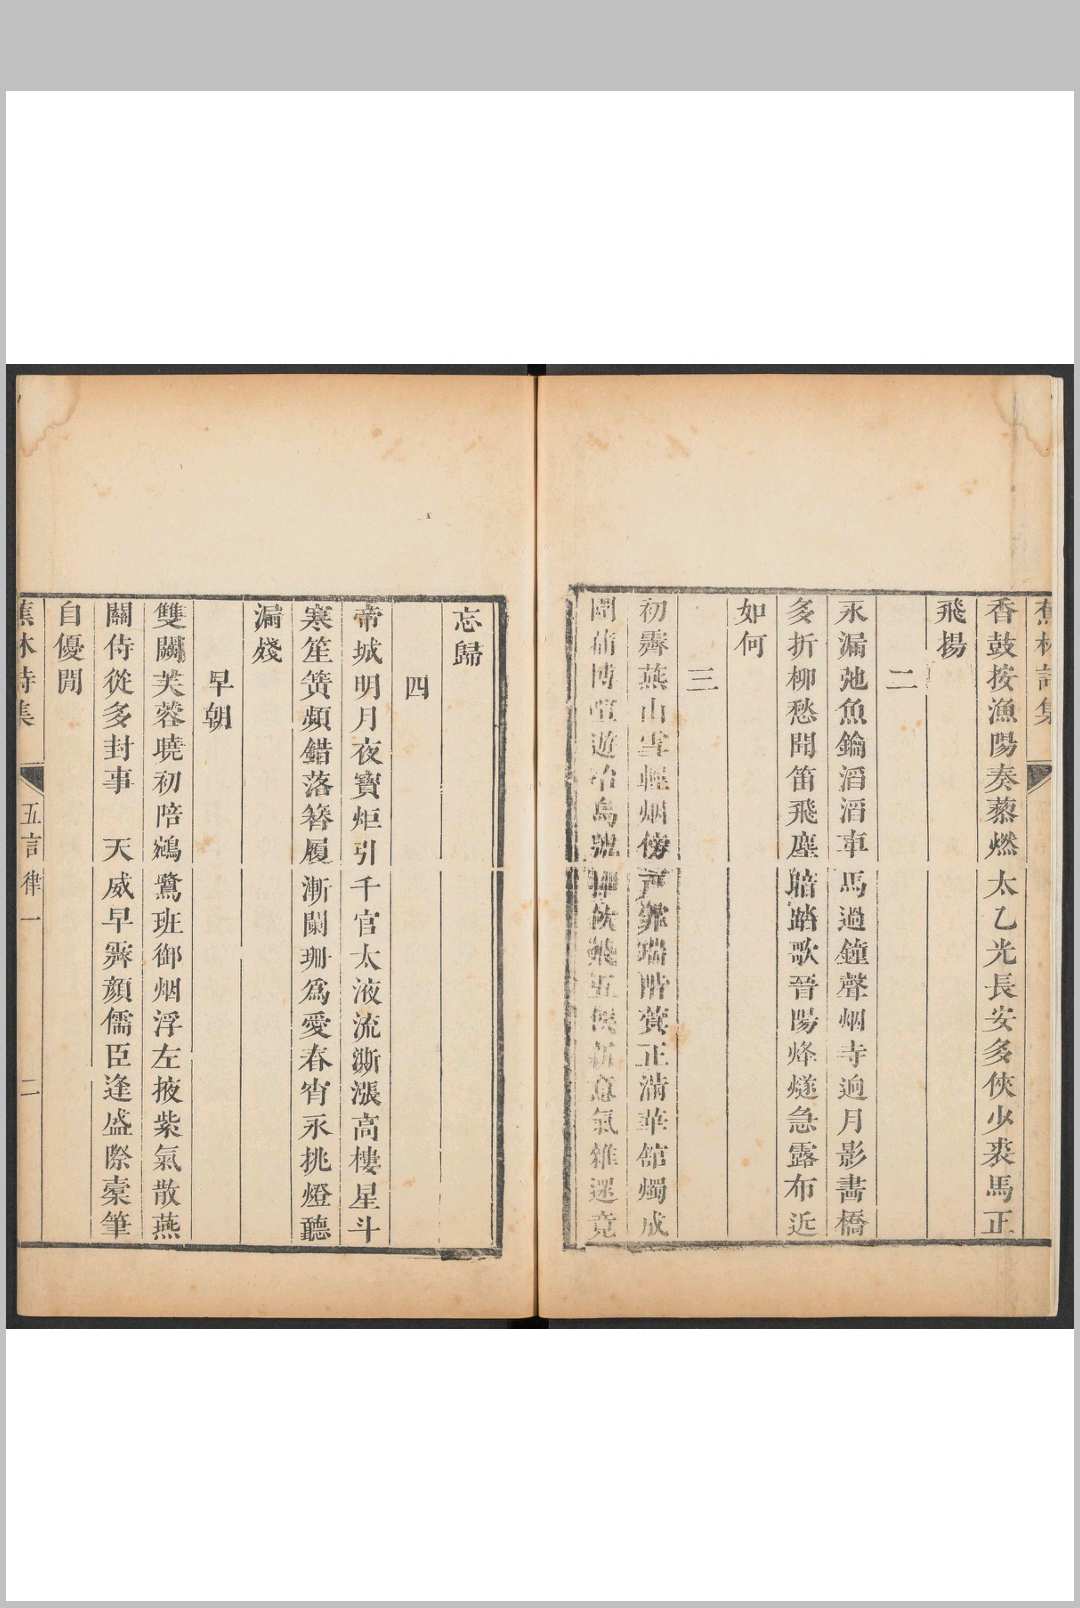 蕉林詩集
香鼓按漁陽奏藜燃太乙光長安多俠少裘馬正
飛揚
二
永漏弛魚鑰滔滔車馬過鐘聲烟寺逈月影畫橋
多折柳愁聞笛飛塵暗踏歌晉陽烽燧急露布近
如何
三
初霽燕山雪輕烟傍戶霏瑞階蓂正滿華舘燭成
遊冶 五 新意氣雜還竟
忘歸
四
帝城明月夜寶炬引千官太液流澌漲高樓星斗
寒笙簧頻錯落簪履漸闌珊爲愛春宵永挑燈聽
漏殘
早朝
雙闕芙蓉曉初陪鵷鷺班御烟浮左掖紫氣散燕
關侍從多封事 天威早霽顏儒臣逢盛際橐筆
自優閒
蕉林詩集 五言律一 二